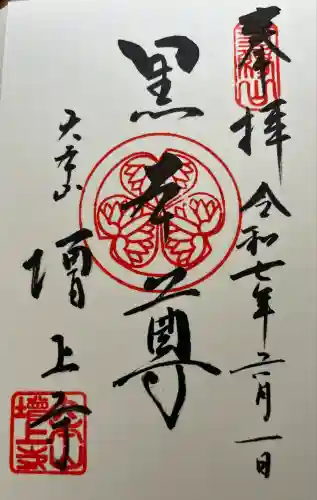 奉拝
令和七年六月一日
黒本尊
大本山
増上寺